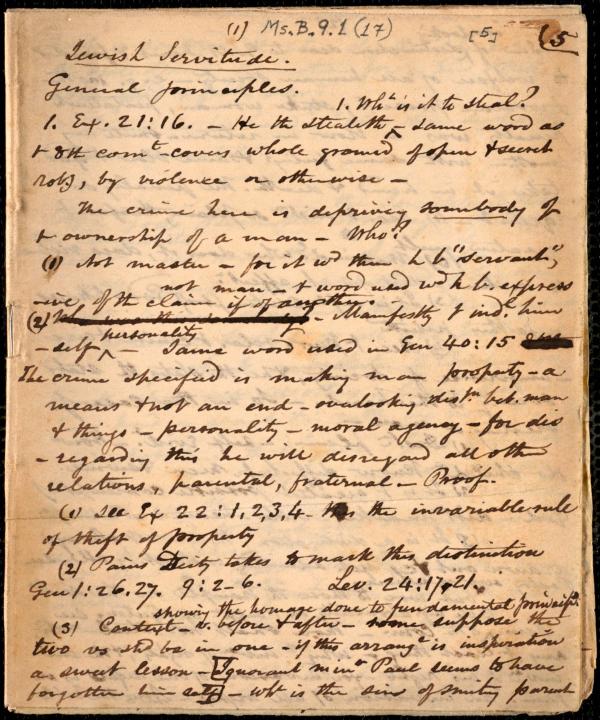 (1) Ms. B. 9. 1 (17) [5] (5
Jewish Servitude.
General principles.
1. Wht is it to steal?
1. Ex. 21:16. – He th stealeth ^ – same word as
t 8th comt – covers whole ground of open & secret
rob, by violence or otherwise –
The crime here is depriving somebody of
t ownership of a man – Who?
(1) Not master – for it wd then h b "servant",
not man – t word used wd h b. express
-ive of the claim if of another.
(2) – Manifestly t ind. him
personality
-self ^ – Same word used in Gen 40:15
The crime specified is making man property – a
means & not an end – overlooking distn bet. man
& things – personality – moral agency – for dis
-regarding this he will disregard all other
relations, parental, fraternal – Proof.
(1) See Ex 22:1,2,3,4 – the invariable rule
of theft of property
(2) Pains Deity takes to mark this distinction
Gen 1:26.27. 9:2–6. Lev. 24:17,21.
showing the homage done to fundamental principl.
(3) Context – v. before & after – suppose the
two vs shd be in one – if this arrangt is inspiration
a sweet lesson – [Ignorant mint Paul seems to have
forgotten him self] – wht is the sin of smiting parent